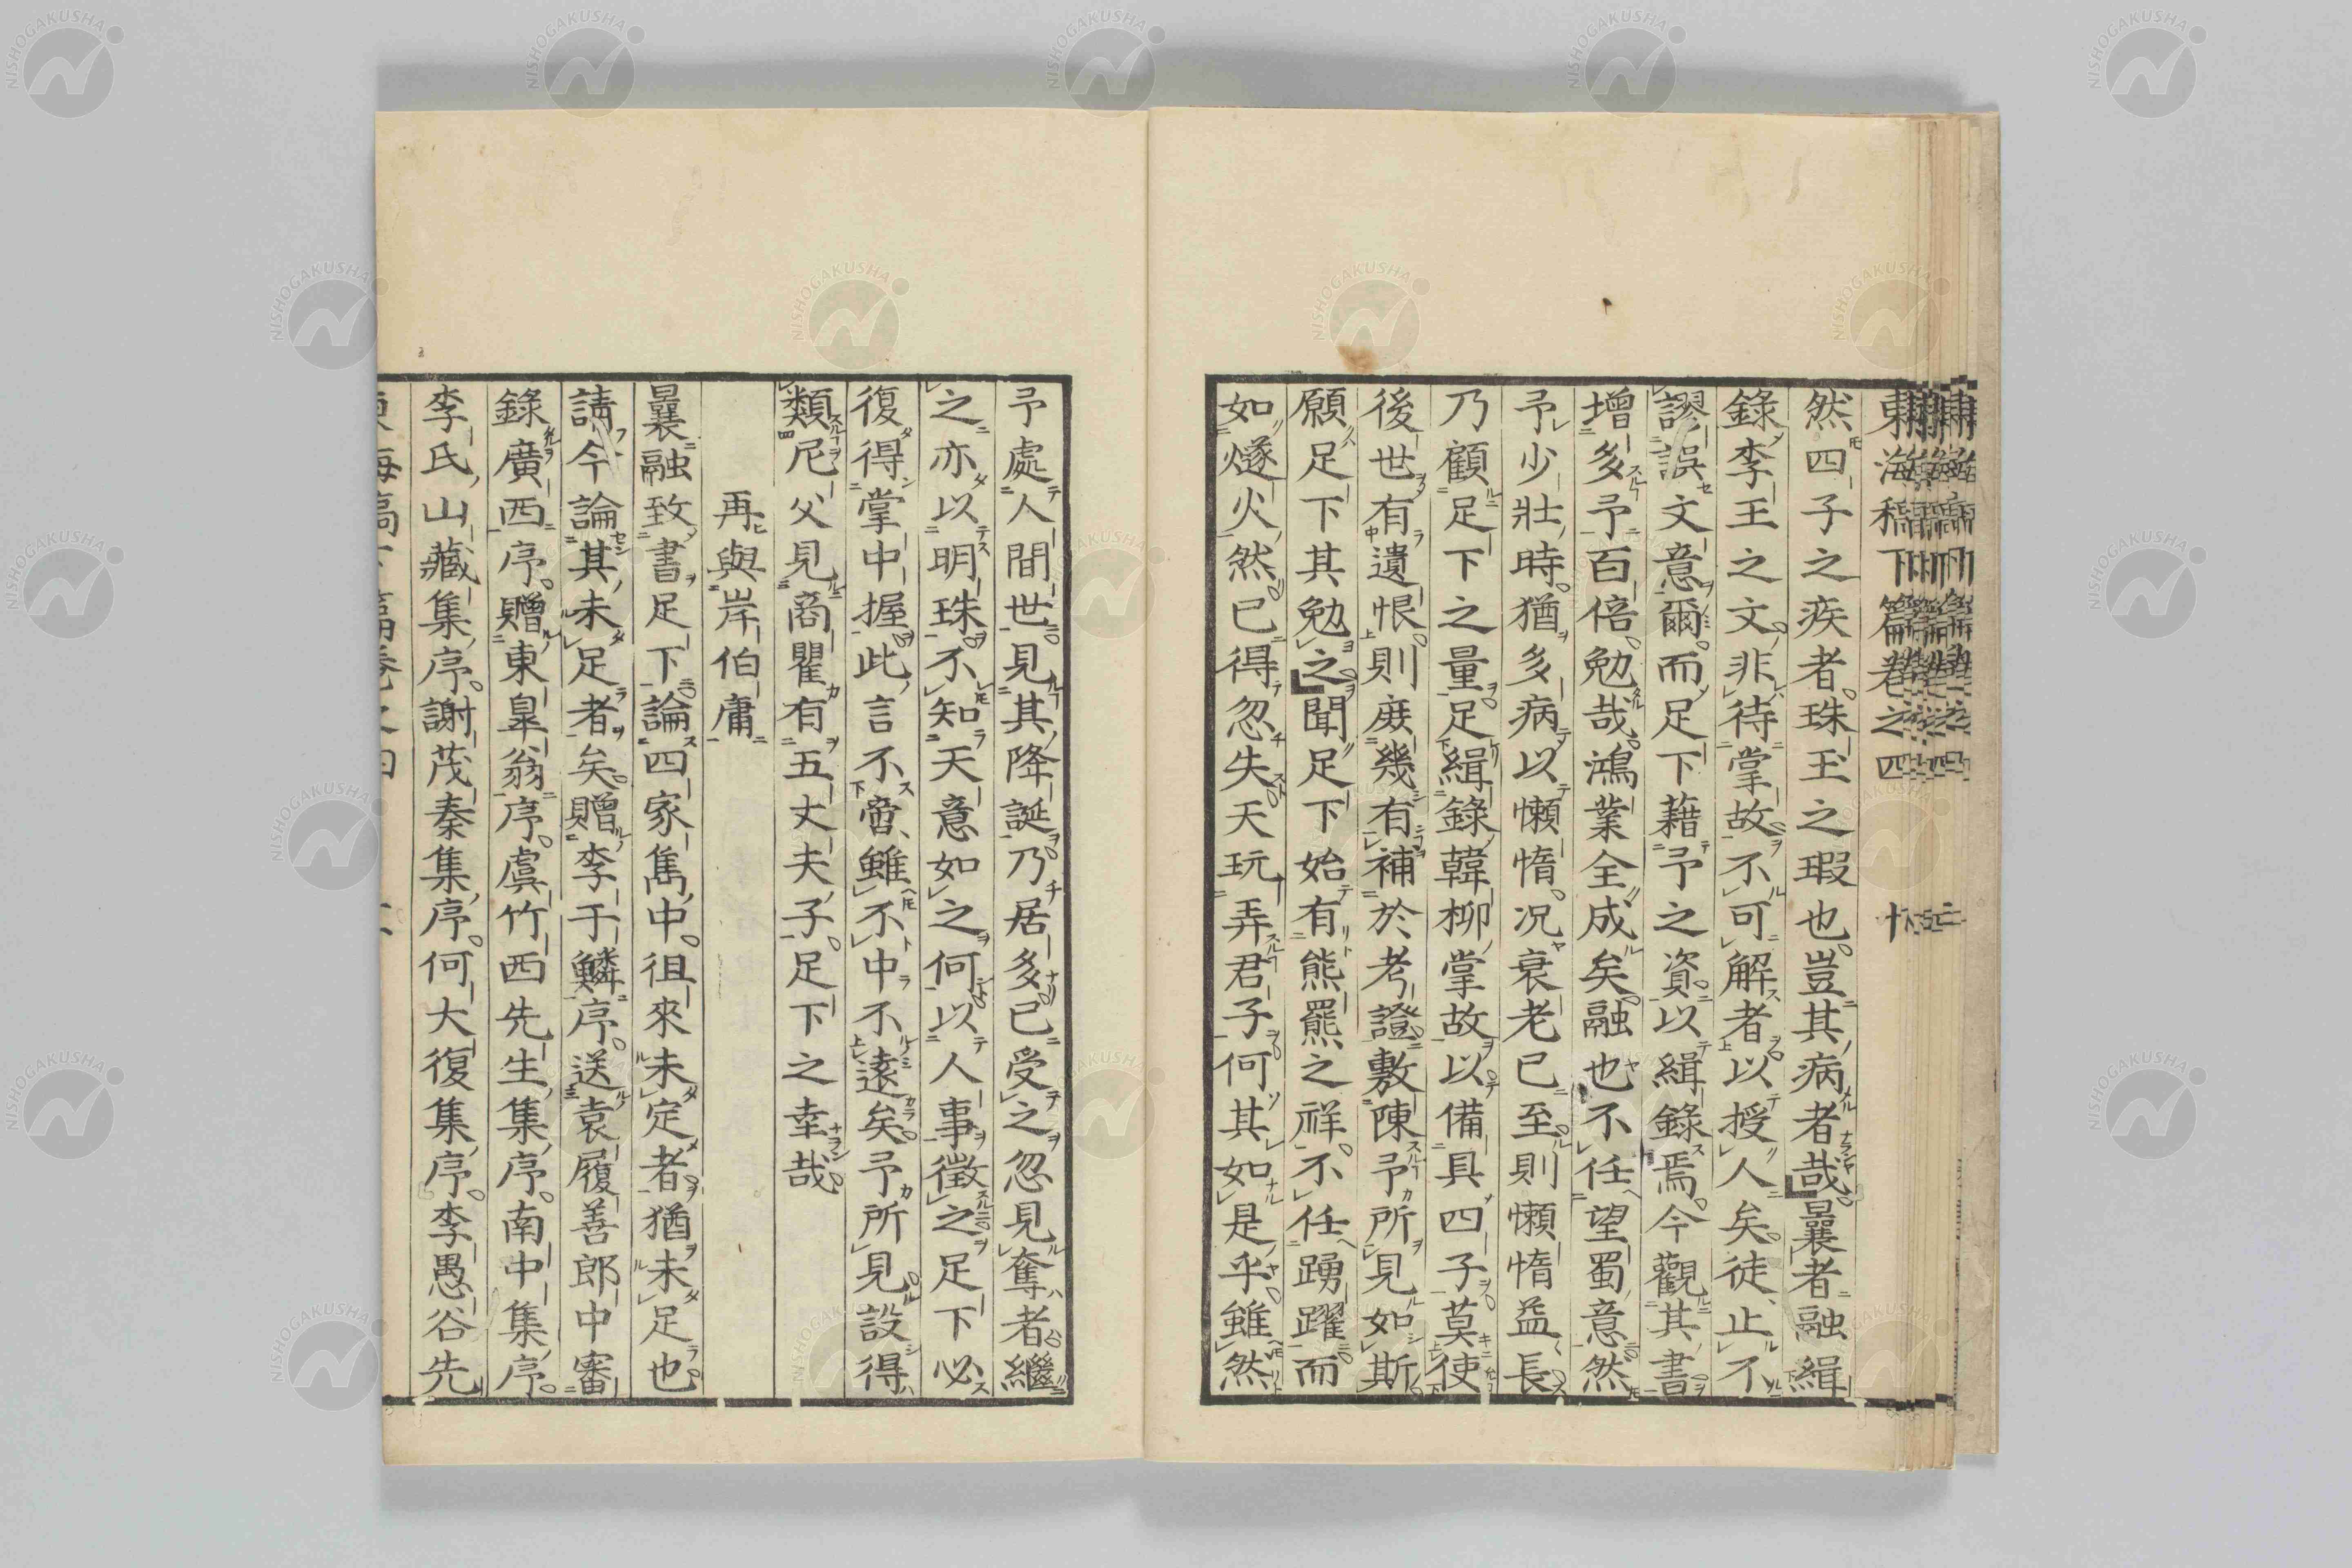 東海稿下篇卷之四
然四子之疾者珠玉之瑕也豈其病者哉曩者融緝
錄李王之文非待掌故不可解者以授人矣徒止不
謬誤文意爾而足下藉予之資以緝錄焉今觀其書
增多予百倍勉哉鴻業全成矣融也不任望蜀意然
予少壯時猶多病以懶惰况衰老已至則懶惰益長
乃顧足下之量足緝錄韓柳掌故以備具四子莫使
後世有遺恨則庶幾有補於考證敷陳予所見如斯
願足下其勉之聞足下始有熊羆之祥不任踴躍而
如燧火然已得忽失天玩弄君子何其如是乎雖然
予處人間世見其降誕乃居多已受之忽見奪者繼
之亦以明珠不知天意如之何以人事徵之足下必
復得掌中握此言不啻雖不中不遠矣予所見設得
類尼父見商瞿有五丈夫子足下之幸哉
再與岸伯庸
曩融致書足下論四家雋中徂來未定者猶未足也
請今論其未足者矣贈李于鱗序送袁履善郎中審
錄廣西序贈東皐翁序虞竹西先生集序南中集序
李氏山藏集序謝茂秦集序何大復集序李愚谷先
NISHOGAKUSHA